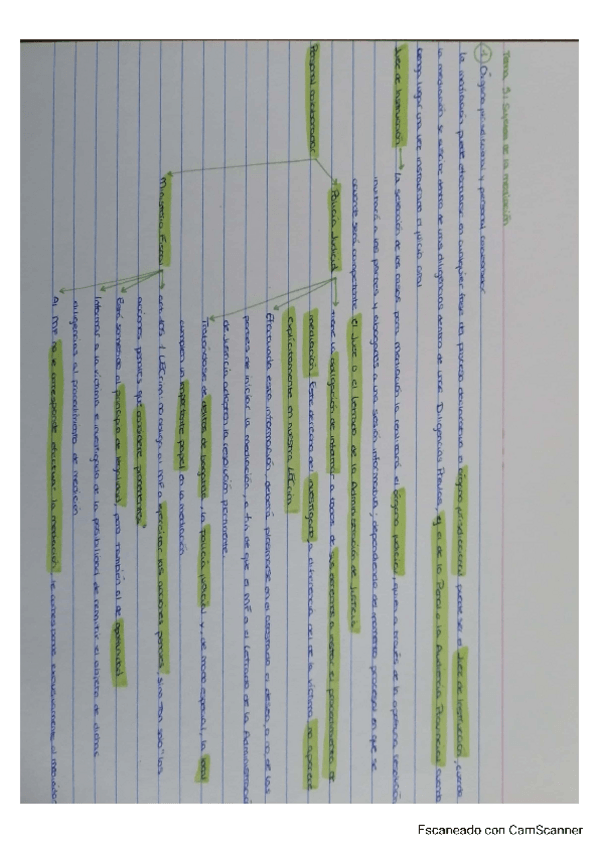 Tema 3: Sujetos de la mediación
① Órgano jurisdiccional y personal colaborador
la mediación puede efectuarse en cualquier fase del proceso declarativo el órgano jurisdiccional puede ser el Juez de Instrucción, cuando
la mediación se suscite dentro de unas diligencias dentro de unas Diligencias Previas, el o de lo Penal o la Audiencia Provincial cuando
tenga lugar una vez instaurado el juicio oral
Juez de Instrucción → la selección de los casos para mediación la realizará el órgano judicial, quien a través de la oportuna resolución
invitará a las partes y abogados a una sesión informativa, dependiendo del momento procesal en que se
encuentre será competente el Juez o el Letrado de la Administración de Justicia
Personal colaborador
Policía Judicial
tiene la obligación de informar acerca de sus derechos a instar el procedimiento de
mediación. Este derecho del investigado, a diferencia del de la víctima, no aparece
explícitamente en nuestra LECrim
Efectuada esta información, deberá plasmarse en el atestado el deseo o no de las
partes de iniciar la mediación, a fin de que el MF o el Letrado de la Administración
de Justicia adopten la resolución pertinente.
Tratándose de delitos de bagatela, la policía judicial y, de modo especial, la local
cumplen un importante papel en la mediación
Ministerio Fiscal
art. 105.1 LECrim: no obliga al MF a ejercitar las acciones penales, sino tan solo "las
acciones penales que considere procedentes"
Está sometido al principio de legalidad, pero también al de oportunidad
Informar a la víctima e investigado de la posibilidad de remitir el objeto de dichas
diligencias al procedimiento de mediación
Al MF no le corresponde efectuar la mediación, le corresponde exclusivamente al mediador
Escaneado con CamScanner